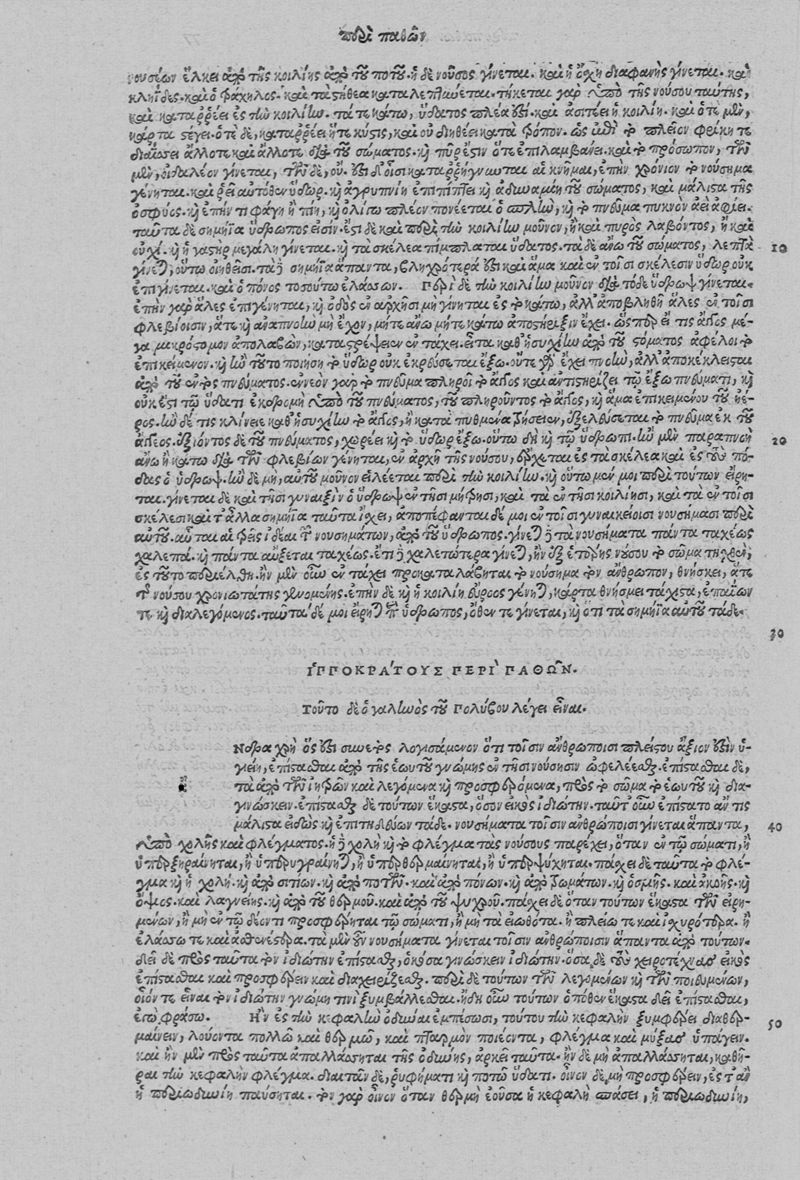 περὶ παθῶν
νουσέων ἕλκει ἀπὸ τῆς κοιλίης ἀπὸ τοῦ ποτοῦ. ἡ δὲ νοῦσος γίνεται. καὶ ἡ ὄρχη διαφανὴς γίνεται. καὶ
κληῗδες. καὶ ὁ τράχηλος. καὶ τὰ στήθεα καταλεπτύνεται. τήκεται γὰρ ὑπὸ τῆς νούσου ταύτης,
καὶ καταρρέει ἐς τὴν κοιλίην. τά τε κάτω, ὕδατος πλέα ἐστί. καὶ ἀσιτέει ἡ κοιλίη. καὶ ὁτὲ μὲν,
κάρτα στέγει. ὁτὲ δὲ, καταρρέει ἥ τε κύστις, καὶ οὐ διηθέει κατὰ τρόπον. ὡς ἐπὶ τὸ πλεῖον φρίκη τε
διαΐσσει ἄλλοτε καὶ ἄλλοτε διὰ τοῦ σώματος. καὶ πῦρ ἔστιν ὅτε ἐπιλαμβάνει. καὶ τὸ πρόσωπον, τῶν
μὲν, οἰδαλέον γίνεται, τῶν δὲ, οὔ. ἔστι δ' οἷσι καταρρήγνυνται αἱ κνῆμαι, ἐπὴν χρόνιον τὸ νούσημα
γένηται. καὶ ῥέει αὐτόθεν ὕδωρ. καὶ ἀγρυπνίη ἐπιπίπτει καὶ ἀδυναμίη τοῦ σώματος, καὶ μάλιστα τῆς
ὀσφύος. καὶ ἐπήν τι φάγῃ ἢ πίῃ, καὶ ὀλίγῳ πλέον πονέεται ὁ σπλήν, καὶ τὸ πνεῦμα πυκνὸν αἰεὶ ἀφίει.
ταῦτα δὲ σημήϊα ὕδρωπός εἰσιν. ἔστι δὲ καὶ περὶ τὴν κοιλίην μοῦνον, ἢ καὶ πυρὸς λαβόντος, ἢ καὶ
οὐχί. καὶ ἡ γαστὴρ μεγάλη γίνεται. καὶ τὰ σκέλεα πίμπλαται ὕδατος. τὰ δὲ ἄνω τοῦ σώματος, λεπτὰ 10
γίνεται, οὕτω οἰηθείσι. τὰ δὲ σημήϊα ἅπαντα, βληχρότερά ἐστι καὶ ἅμα καὶ ἐν τοῖσι σκέλεσιν ὕδωρ οὐκ
ἐπιγίνεται. καὶ ὁ πόνος τοσούτῳ ἐλάσσων. Περὶ δὲ τὴν κοιλίην μοῦνον διὰ τόδε ὕδρωψ γίνεται.
ἐπὴν γὰρ ἅλες ἐπιγένηται, καὶ ὁδὸς ἐν ἀρχῇσι μὴ γίνηται ἐς τὸ κάτω, ἀλλ' ἀποβληθῇ ἅλες ἐν τοῖσι
φλεβίοισιν, ἅτε καὶ ἀναπνοὴν μὴ ἔχον, μήτε ἄνω μήτε κάτω ἀποστήριξιν ἔχει. ὥσπερ εἴ τις ἄγγος μέ-
γα μικρόστομον ἀπολαβὼν, καταστρέψειεν ἐν τάχει. εἶτα καθ' ἡσυχίην ἀπὸ τοῦ στόματος ἀφέλοι τὸ
ἐπικείμενον. καὶ ἢν τοῦτο ποιήσῃ τὸ ὕδωρ οὐκ ἐκρύσεται ἔξω. οὔτε γὰρ ἔχει πνοὴν, ἀλλ' ἀποκέκλεισται
ἀπὸ τοῦ ἐντὸς πνεύματος. ἐνεὸν γὰρ τὸ πνεῦμα πληροῖ τὸ ἄγγος καὶ ἀντιστηρίζει τῷ ἔξω πνεύματι, καὶ
οὐκ ἔστι τῷ ὕδατι ἐκδρομὴ ὑπὸ τοῦ πνεύματος, τοῦ πληροῦντος τὸ ἄγγος, καὶ ἅμα ἐπικειμένου τοῦ ἠέ-
ρος. ἢν δέ τις κλίνῃ καθ' ἡσυχίην τὸ ἄγγος, ἢ κατὰ πυθμένα τρήσειεν, ἐξελεύσεται τὸ πνεῦμα ἐκ τοῦ
ἄγγεος. ἐξιόντος δὲ τοῦ πνεύματος, χωρέει καὶ τὸ ὕδωρ ἔξω. οὕτω δὴ καὶ τῷ ὕδρωπι. ἢν μὲν παραπνοὴ 20
ἄνω ἢ κάτω διὰ τῶν φλεβίων γένηται, ἐν ἀρχῇ τῆς νούσου, ἔρχεται ἐς τὰ σκέλεα καὶ ἐς τοὺς πό-
δας ὁ ὕδρωψ. ἢν δὲ μὴ, αὐτοῦ μοῦνον εἱλέεται περὶ τὴν κοιλίην. καὶ οὕτω μέν μοι περὶ τούτων εἴρη-
ται. γίνεται δὲ καὶ τῇσι γυναιξὶν ὁ ὕδρωψ ἐν τῇσι μήτρῃσι, καὶ τὰ ἐν τῇσι κοιλίῃσι, καὶ τὰ ἐν τοῖσι
σκέλεσι καὶ τἆλλα σημήϊα ταῦτα ἴσχει, ἀποπέφανται δέ μοι ἐν τοῖσι γυναικείοισι νουσήμασι περὶ
αὐτοῦ. αὗται αἱ τρεῖς ἰδέαι τῶν νουσημάτων, ἀπὸ τοῦ ὕδρωπος. γίνεται δὲ τὰ νουσήματα πάντα ταχέως
χαλεπά. καὶ πάντα αὔξεται ταχέως. ἔτι δὲ χαλεπώτερα γίνεται, ἢν ἐξ ἑτέρης νούσου τὸ σῶμα τηχθὲν,
ἐς τοῦτο περιέλθῃ. ἢν μὲν οὖν ἐν τάχει προκαταλάβηται τὸ νούσημα τὸν ἄνθρωπον, θνήσκει, ἅτε
τῆς νούσου χρονιωτάτης γινομένης. ἐπὴν δὲ καὶ ἡ κοιλίη ὕδρωπος γένηται, κάρτα θνήσκει τάχιστα, ἐπαΐων
τε καὶ διαλεγόμενος. ταῦτα δέ μοι εἴρηται περὶ ὕδρωπος, ὅθεν τε γίνεται, καὶ ὅτι τὰ σημήϊα αὐτοῦ τάδε.
30
ἹΠΠΟΚΡΑΤΟΥΣ ΠΕΡῚ ΠΑΘΩ͂Ν.
Τοῦτο δὲ ὁ γαληνὸς τοῦ Πολύβου λέγει εἶναι.
Νδρα χρὴ ὅς ἐστι συνετὸς λογισάμενον ὅτι τοῖσιν ἀνθρώποισι πλείστου ἄξιόν ἐστιν ὑ-
γιείη, ἐπίστασθαι ἀπὸ τῆς ἑωυτοῦ γνώμης ἐν τῇσι νούσησιν ὠφελέεσθαι. ἐπίστασθαι δὲ,
τὰ ἀπὸ τῶν ἰητρῶν καὶ λεγόμενα καὶ προσφερόμενα, πρὸς τὸ σῶμα τὸ ἑωυτοῦ καὶ δια-
γινώσκειν. ἐπίστασθαι δὲ τούτων ἕκαστα, ὅσον εἰκὸς ἰδιώτην. ταῦτ' οὖν ἐπίσταιτο ἄν τις
μάλιστα εἰδὼς καὶ ἐπιτηδεύων τάδε. νουσήματα τοῖσιν ἀνθρώποισι γίνεται ἅπαντα, 40
ὑπὸ χολῆς καὶ φλέγματος. ἡ δὲ χολὴ καὶ τὸ φλέγμα τὰς νούσους παρέχει, ὅταν ἐν τῷ σώματι, ἢ
ὑπερξηραίνηται, ἢ ὑπερυγραίνηται, ἢ ὑπερθερμαίνηται, ἢ ὑπερψύχηται. πάσχει δὲ ταῦτα τὸ φλέ-
γμα καὶ ἡ χολή. καὶ ἀπὸ σιτίων. καὶ ἀπὸ ποτῶν. καὶ ἀπὸ πόνων. καὶ ἀπὸ τρωμάτων. καὶ ὀσμῆς. καὶ ἀκοῆς. καὶ
ὄψιος. καὶ λαγνείης. καὶ ἀπὸ τοῦ θερμοῦ. καὶ ἀπὸ τοῦ ψυχροῦ. πάσχει δὲ ὅταν τούτων ἕκαστα τῶν εἰρη-
μένων, ἢ μὴ ἐν τῷ δέοντι προσφέρηται τῷ σώματι, ἢ μὴ τὰ εἰωθότα. ἢ πλείω τε καὶ ἰσχυρότερα. ἢ
ἐλάσσω τε καὶ ἀσθενέστερα. τὰ μὲν οὖν νουσήματα γίνεται τοῖσιν ἀνθρώποισιν ἅπαντα ἀπὸ τούτων.
δεῖ δὲ πρὸς ταῦτα τὸν ἰδιώτην ἐπίστασθαι, ὁκόσα γινώσκειν ἰδιώτην. ὅσα δὲ τοὺς χειροτέχνας εἰκὸς
ἐπίστασθαι καὶ προσφέρειν καὶ διαχειρίζεσθαι. περὶ δὲ τούτων τῶν λεγομένων καὶ τῶν ποιευμένων,
οἷόν τε εἶναι τὸν ἰδιώτην γνώμῃ τινὶ ξυμβάλλεσθαι. ἤδη οὖν τούτων ὁπόθεν ἕκαστα δεῖ ἐπίστασθαι,
ἐγὼ φράσω. Ἢν ἐς τὴν κεφαλὴν ὀδύναι ἐμπέσωσι, τούτου τὴν κεφαλὴν ξυμφέρει διαθερ- 50
μαίνειν, λούοντα πολλῷ καὶ θερμῷ, καὶ πταρμὸν ποιέοντα, φλέγμα καὶ μύξας ὑπάγειν.
καὶ ἢν μὲν πρὸς ταῦτα ἀπαλλάσσηται τῆς ὀδύνης, ἀρκεῖ ταῦτα. ἢν δὲ μὴ ἀπαλλάσσηται, καθῆ-
ραι τὴν κεφαλὴν φλέγμα. διαιτᾶν δὲ, ῥυφήματι καὶ ποτῷ ὕδατι. οἶνον δὲ μὴ προσφέρειν, ἔς τ' ἂν
ἡ περιωδυνίη παύσηται. τὸν γὰρ οἶνον ὅταν θερμὴ ἐοῦσα ἡ κεφαλὴ σπάσῃ, ἡ περιωδυνίη,